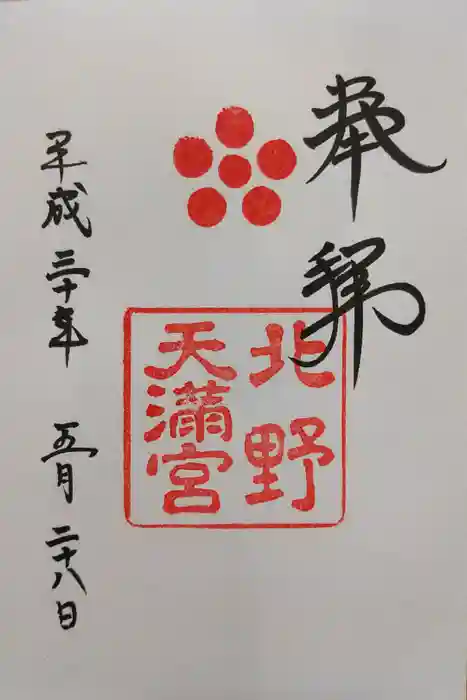 奉拝
北野
天満宮
平成三十年 五月二十八日